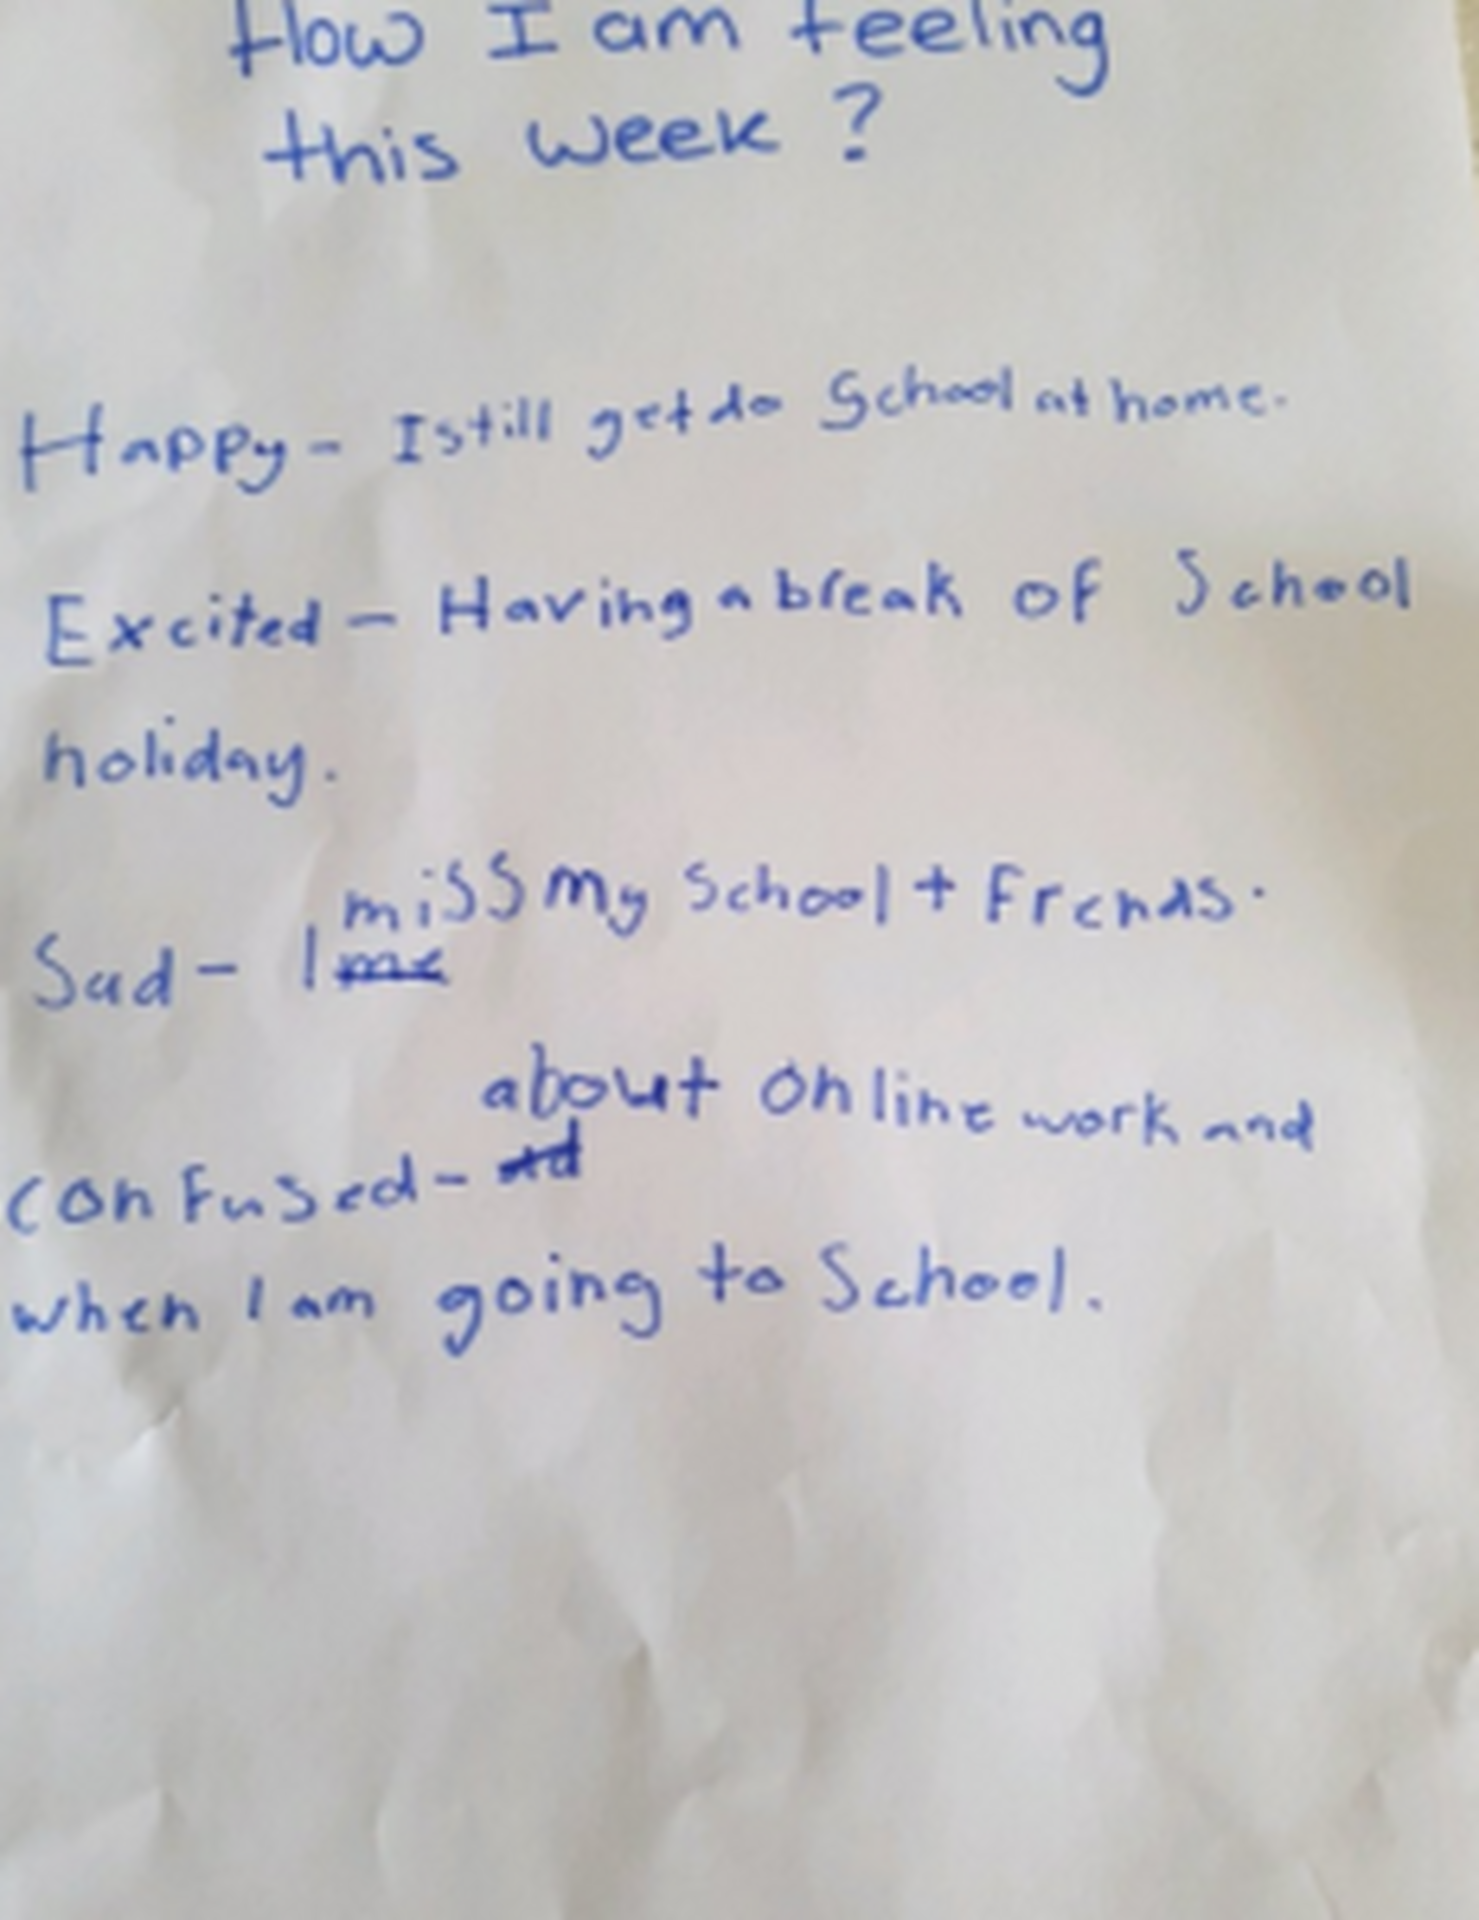 How I am feeling
this week ?
Happy - I still get do School at home.
Excited - Having a break of School
holiday.
miss my School + Frends.
Sad - I me
about online work and
confused - ad
when I am going to School.